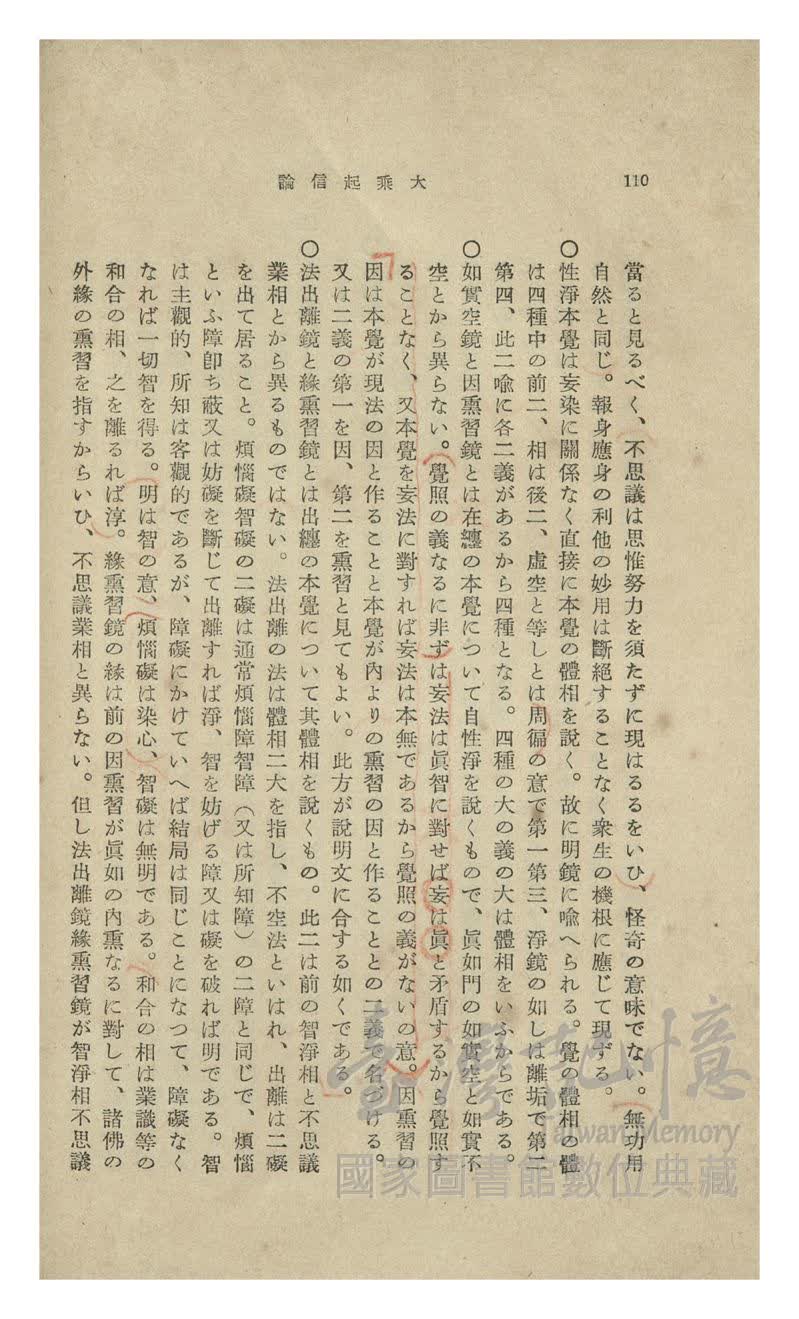 110
大乘起信論
當ると見るべく、不思議は思惟努力を須たずに現はるるをいひ、怪奇の意味でない。無功用
自然と同じ。報身應身の利他の妙用は斷絶することなく衆生の機根に應じて現ずる。
〇性淨本覺は妄染に關係なく直接に本覺の體相を說く。故に明鏡に喩へられる。覺の體相の體
は四種中の前二、相は後二、虛空と等しとは周徧の意で第一第三、淨鏡の如しは離垢で第二
第四、此二喩に各二義があるから四種となる。四種の大の義の大は體相をいふからである。
〇如實空鏡と因熏習鏡とは在纏の本覺について自性淨を說くもので、眞如門の如實空と如實不
空とから異らない。覺照の義なるに非ずは妄法は眞智に對せば妄は眞と矛盾するから覺照す
ることなく、又本覺を妄法に對すれば妄法は本無であるから覺照の義がないの意。因熏習の
因は本覺が現法の因と作ることと本覺が內よりの熏習の因と作ることとの二義で名づける。
又は二義の第一を因、第二を熏習と見てもよい。此方が說明文に合する如くである。
〇法出離鏡と緣熏習鏡とは出纏の本覺について其體相を說くもの。此二は前の智淨相と不思議
業相とから異るものではない。法出離の法は體相二大を指し、不空法といはれ、出離は二礙
を出て居ること。煩惱礙智礙の二礙は通常煩惱障智障（又は所知障）の二障と同じで、煩惱
といふ障卽ち蔽又は妨礙を斷じて出離すれば淨、智を妨げる障又は礙を破れば明である。智
は主觀的、所知は客觀的であるが、障礙にかけていへば結局は同じことになつて、障礙なく
なれば一切智を得る。明は智の意、煩惱礙は染心、智礙は無明である。和合の相は業識等の
和合の相、之を離るれば淳。緣熏習鏡の緣は前の因熏習が眞如の內熏なるに對して、諸佛の
外緣の熏習を指すからいひ、不思議業相と異らない。但し法出離鏡緣熏習鏡が智淨相不思議
臺灣記憶
Taiwan Memory
國家圖書館數位典藏